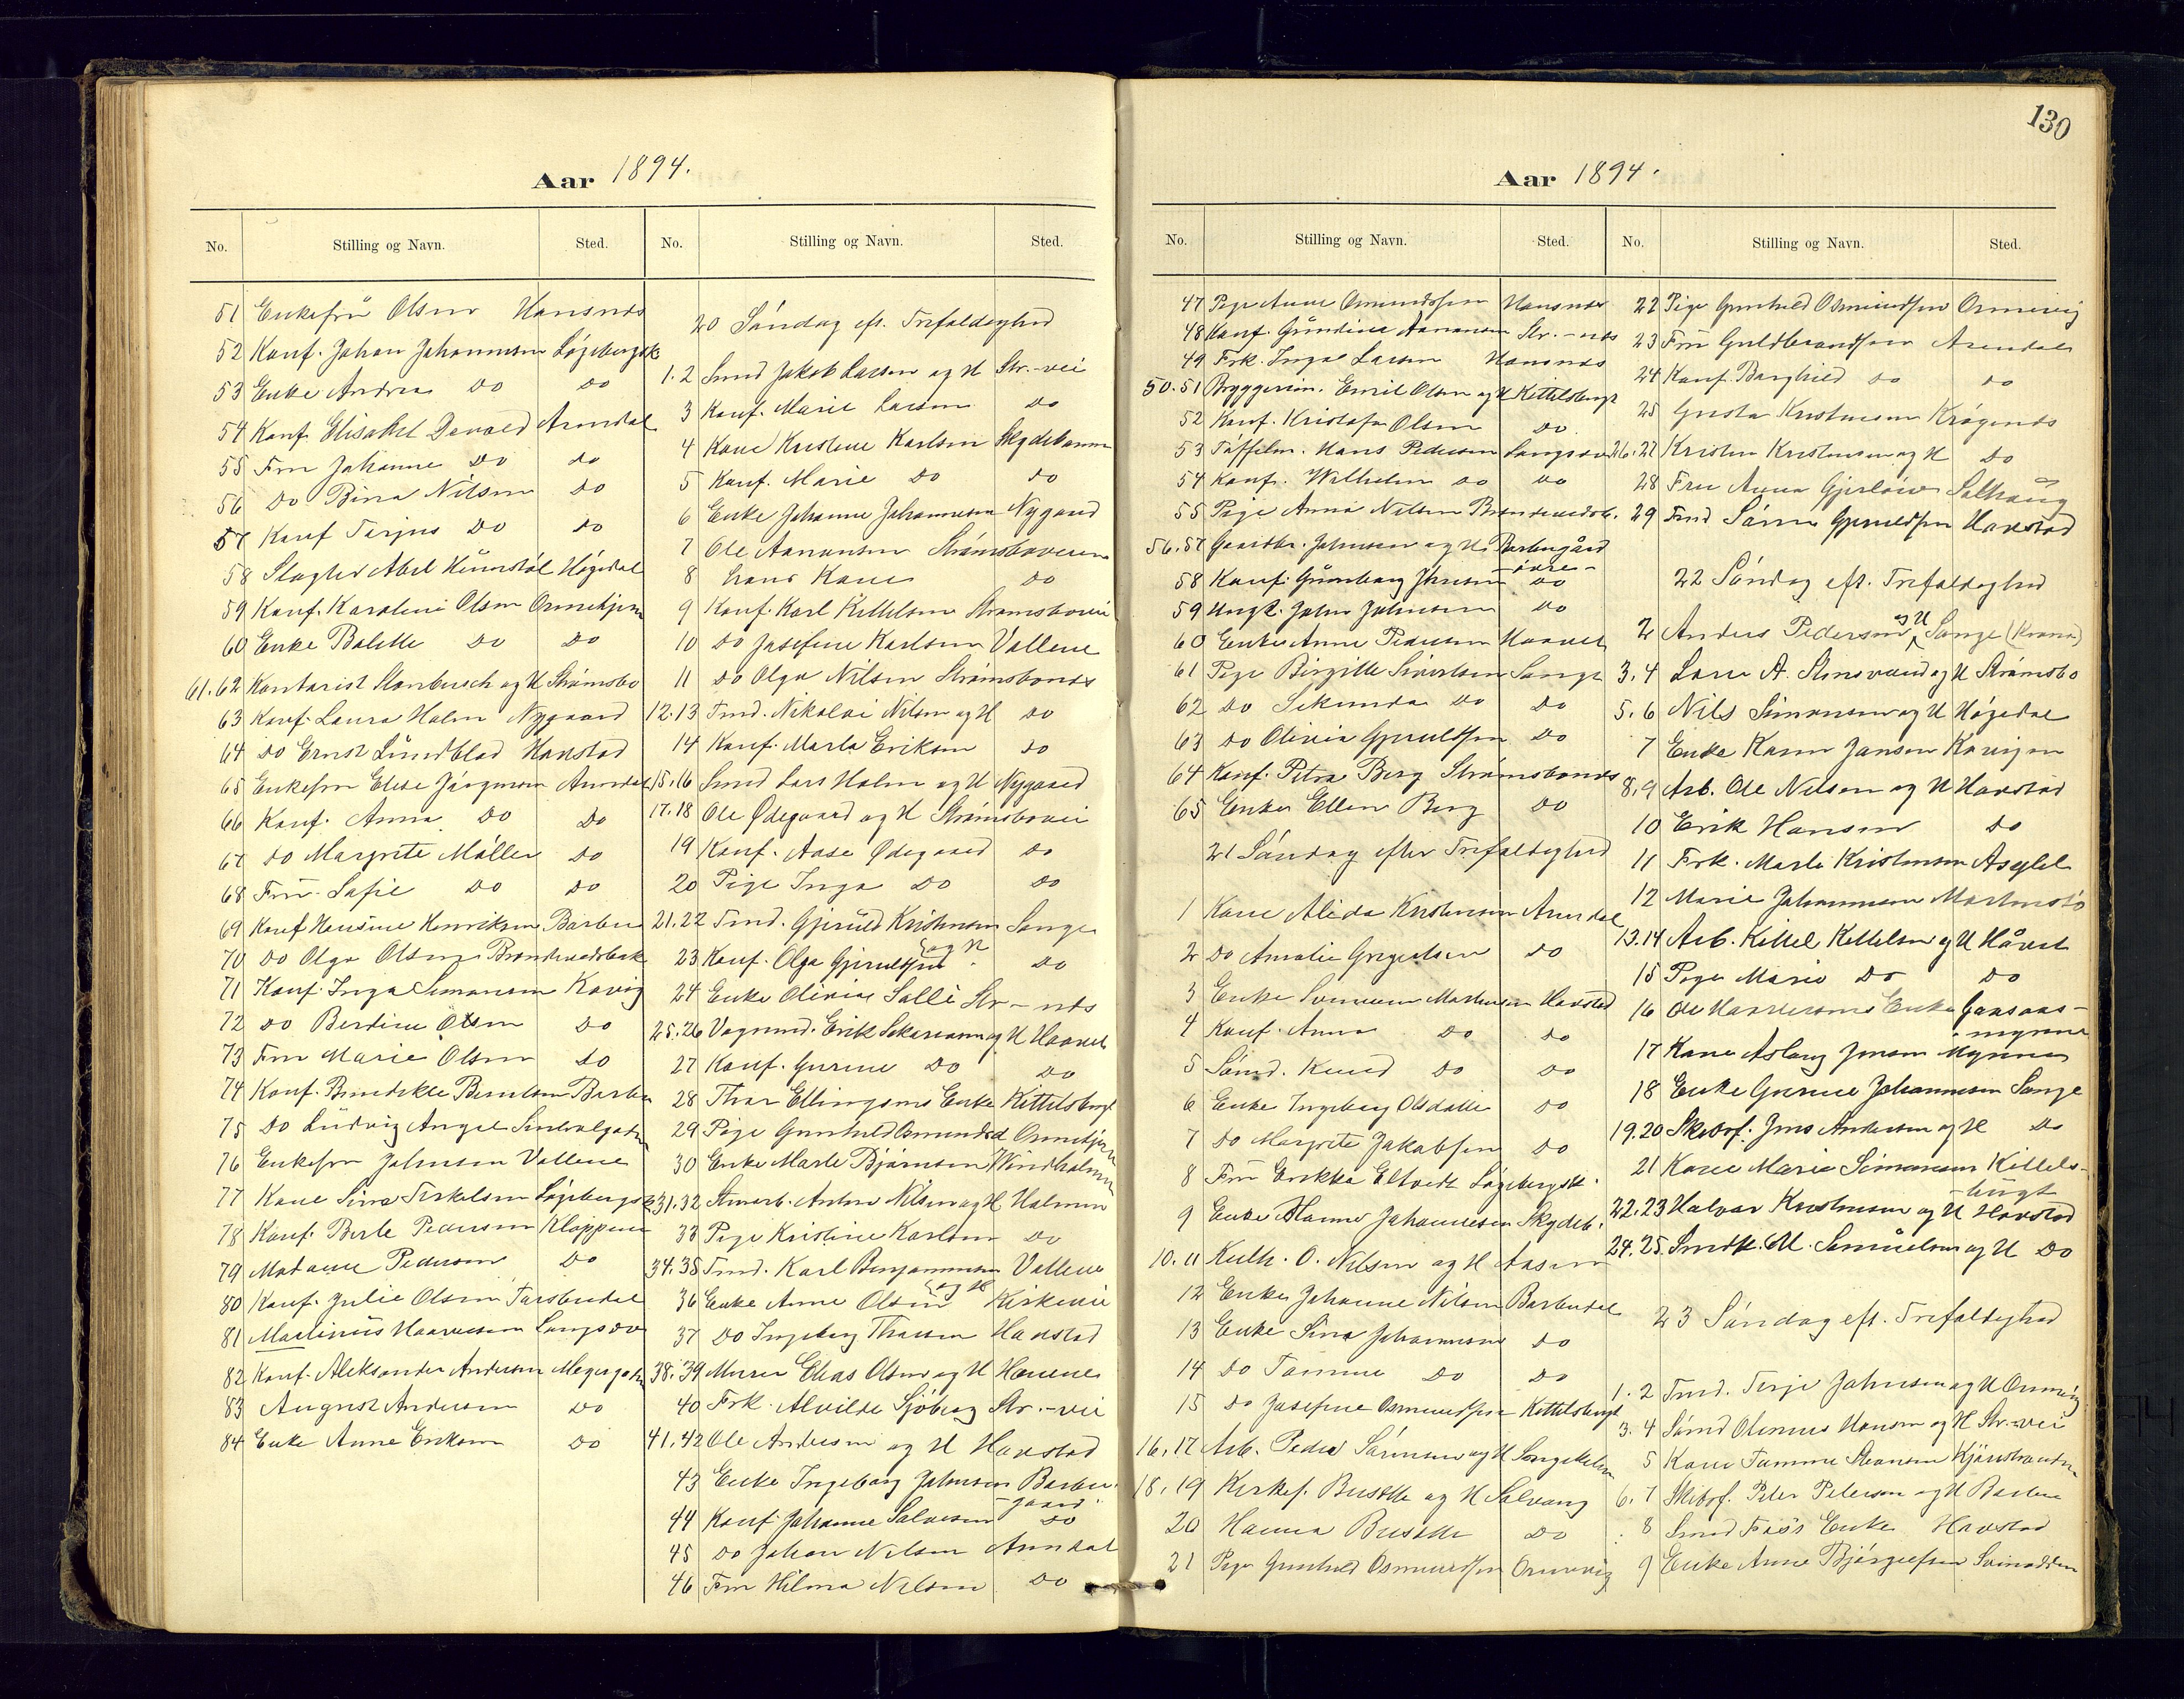 130
Aar 1894.
No. Stilling og Navn. Sted.
51 Enkefru Olsen Hansnes
52 Konf. Johan Johannesen Løgebergsk
53 Enke Andrea do do
54 Konf. Elisabet Devold Arendal
55 Fru Johanne do do
56 do Bina Nilsen do
57 Konf Terjus do do
58 Slagter Abel Høgedal
59 Konf. Karoline Olsen Ormekjern
60 Enke Bolette do do
61.62 Kontorist og H Strømsbo
63 Konf. Laura Holm Nygaard
64 do Ernst Lundblad Havstad
65 Enkefru Elise Jørgensen Arendal
66 Konf. Anna do do
67 do Margrete Møller do
68 Fru Sofie do do
69 Konf Hansine Henriksen Barbu
70 do Olga Olsen
71 Konf. Inga Simonsen Kavig
72 do Berdine Olsen do
73 Fru Marie Olsen do
74 Konf. Benedikte Berntsen Barbu
75 do Ludvig Angel
76 Enkefru Johnsen Vollene
77 Kone Sina Terkelsen Løgebergsk
78 Konf. Berte Pedersen Kloppene
79 Madame Pedersen do
80 Konf. Julie Olsen Torsbudal
81 Martinius Langsæv
82 Konf. Aleksander Andersen
83 August Andersen do
84 Enke Anne Eriksen do
No. Stilling og Navn. Sted.
20 Søndag eft. Trefoldighed
1.2 Smed Jakob Larsen og H Str.-vei
3 Konf. Marie Larsen do
4 Kone Kristine Karlsen Skydebanen
5 Konf. Marie do do
6 Enke Johanne Johannesen Nygaard
7 Ole Aanonsen Strømsboveien
8 hans Kone do
9 Konf. Karl Kittelsen Strømsbovei
10 do Josefine Karlsen Vollene
11 do Olga Nilsen Strømsbonds
12.13 Tmd. Nikolai Nilsen og H do
14 Konf. Marta Eriksen do
15.16 Smed Lars Holm og H Nygaard
17.18 Ole Ødegaard og H Strømsbovei
19 Konf. Aase Ødegaard do
20 Pige Inga do do
21.22 Tmd. Gjeruld Kristensen Songe
23 Konf. Olga Gjeruldsen og H do
24 Enke Olivia Salli Str-nds
25.26 Vognmd. Erik Sakariasen og H Haavet
27 Konf. Gurine do do
28 Thor Ellingsens Enke Kittelsbugt
29 Pige Gunhild Osmundsd Ormekjern
30 Enke Marte Bjørnsen Vindholmen
31.32 Anton Nilsen og H Holmen
33 Pige Kristine Karlsen do
34.35 Tmd. Karl Benjaminsen Vollene
36 Enke Anne Olsen og H Kirkevei
37 do Ingeborg Thorsen Havstad
38.39 Murer Elias Olsen og H Havene
40 Frk. Alvilde Sjøberg Str.-vei
41.42 Ole Andersen og H Havstad
43 Enke Ingeborg Johnsen Barbu-
-gaard.
44 Konf. Johanne Salvesen do
45 do Johan Nilsen Arendal
46 Fru Hilma Nilsen do
Aar 1894.
No. Stilling og Navn. Sted.
47 Pige Anne Osmundsen Hansnes
48 Konf. Gundine Aanonsen Str.-nds
49 Frk. Inga Larsen Hansnes
50.51 Bryggerim. Emil Olsen og H Kittelsbugt
52 Konf. Kristofa Olsen do
53 Tøffelm. Hans Pedersen Langsæv
54 Konf. Wilhelm do do
55 Pige Anna Nilsen
56.57 Gaardbr. Johnsen og H Barbugård
58 Konf. øvre- do
59 Ungk. John Johnsen do
60 Enke Anne Pedersen Haavet
61 Pige Birgitte Sivertsen Songe
62 do Sekunda do do
63 do Olivia Gjeruldsen do
64 Konf. Petra Berg Strømsbonds
65 Enke Ellen Berg do
21 Søndag efter Trefoldighed
1 Kone Alida Kristensen Arendal
2 do Amalie Gregertsen do
3 Enke Havstad
4 Konf. Anna do do
5 Sømd. Knud do do
6 Enke Ingeborg Olsdatter do
7 do Margrete Jakobsen do
8 Fru Erikka Eltvedt Løgebergsk.
9 Enke Hanne Johannesen Skydeb.
10.11 O. Nilsen og H Aasen
12 Enke Johanne Nilsen Barbudal
13 Enke Sina Johannesen do
14 do Tomine do do
15 do Josefine Osmundsen Kittelsbugt
16,17 Arb. Peder Sørensen og H Songekilen
18,19 Kirkef. Busttle og H Solvang
20 Hanna Busttle do
21 Pige Gunhild Osmundsen Ormevig
No. Stilling og Navn. Sted.
22 Pige Gunhild Osmundsen Ormevig
23 Fru Guldbrandsen Arendal
24 Konf. Borghild do do
25 Gusta Kristensen Krøgenes
26.27 Kristen Kristensen og H do
28 Fru Anna Gjerløw Solhaug
29 Tmd Søren Gjeruldsen Havstad
22 Søndag eft. Trefoldighed
2 Anders Pedersen og H Songe
3.4 Lars A. Stensvand og H Strømsbo
5.6 Nils Simonsen og H Høgedal
7 Enke Karen Jansen
8,9 Arb. Ole Nilsen og H Havstad
10 Erik Hansen do
11 Frk. Marte Kristensen Asylet
12 Marie Johannesen
13.14 Arb. Kittel Kittelsen og H Håvet
15 Pige Maria do do
16 Enke Gaasaas-
-myrene
17 Kone Aslaug Jensen Myrene
18 Enke Gurine Johannesen Songe
19.20 Skibsf. Jens Andersen og H do
21 Kone Marie Simonsen Kittels-
-bugt
22.23 Halvor Kristensen og H Havstad
24.25 M. Samuelsen og H do
23 Søndag eft. Trefoldighed
1.2 Tmd. Terje Johnsen og H Ormevig
3.4 Sømd Olenius Hansen og H Str.-vei
5 Kone Tomine
6.7 Skibsf. Peter Petersen og H Barbu
8 Smed Enke Havstad
9 Enke Anne Bjørgulfsen Svinodden